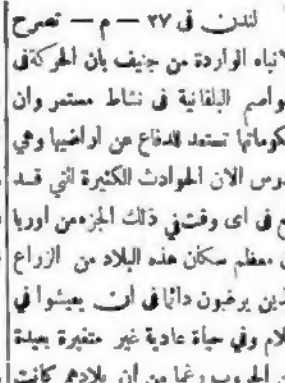 لندن فى ٢٧ — م — تصرح
لانباء الواردة من جنيف بان الحركة فى
واصم البلقانية فى نشاط مستمر وان
كوماتها تستعد للدفاع عن اراضيها وهي
درس الان الحوادث الكثيرة التي قد
ع فى اى وقت في ذلك الجزء من اوربا
ن معظم سكان هذه البلاد من الزراع
لذين يرغبون دائما فى ان يعيشوا في
لام وفي حياة عادية غير متغيرة بعيدة
ن الحروب رغما من ان بلادهم كانت